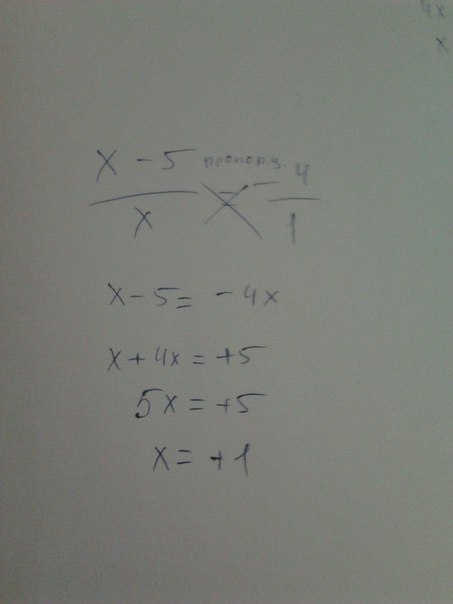 4x
x
x - 5 пропорц. - 4
x = 1
x - 5 = - 4x
x + 4x = +5
5x = +5
x = +1